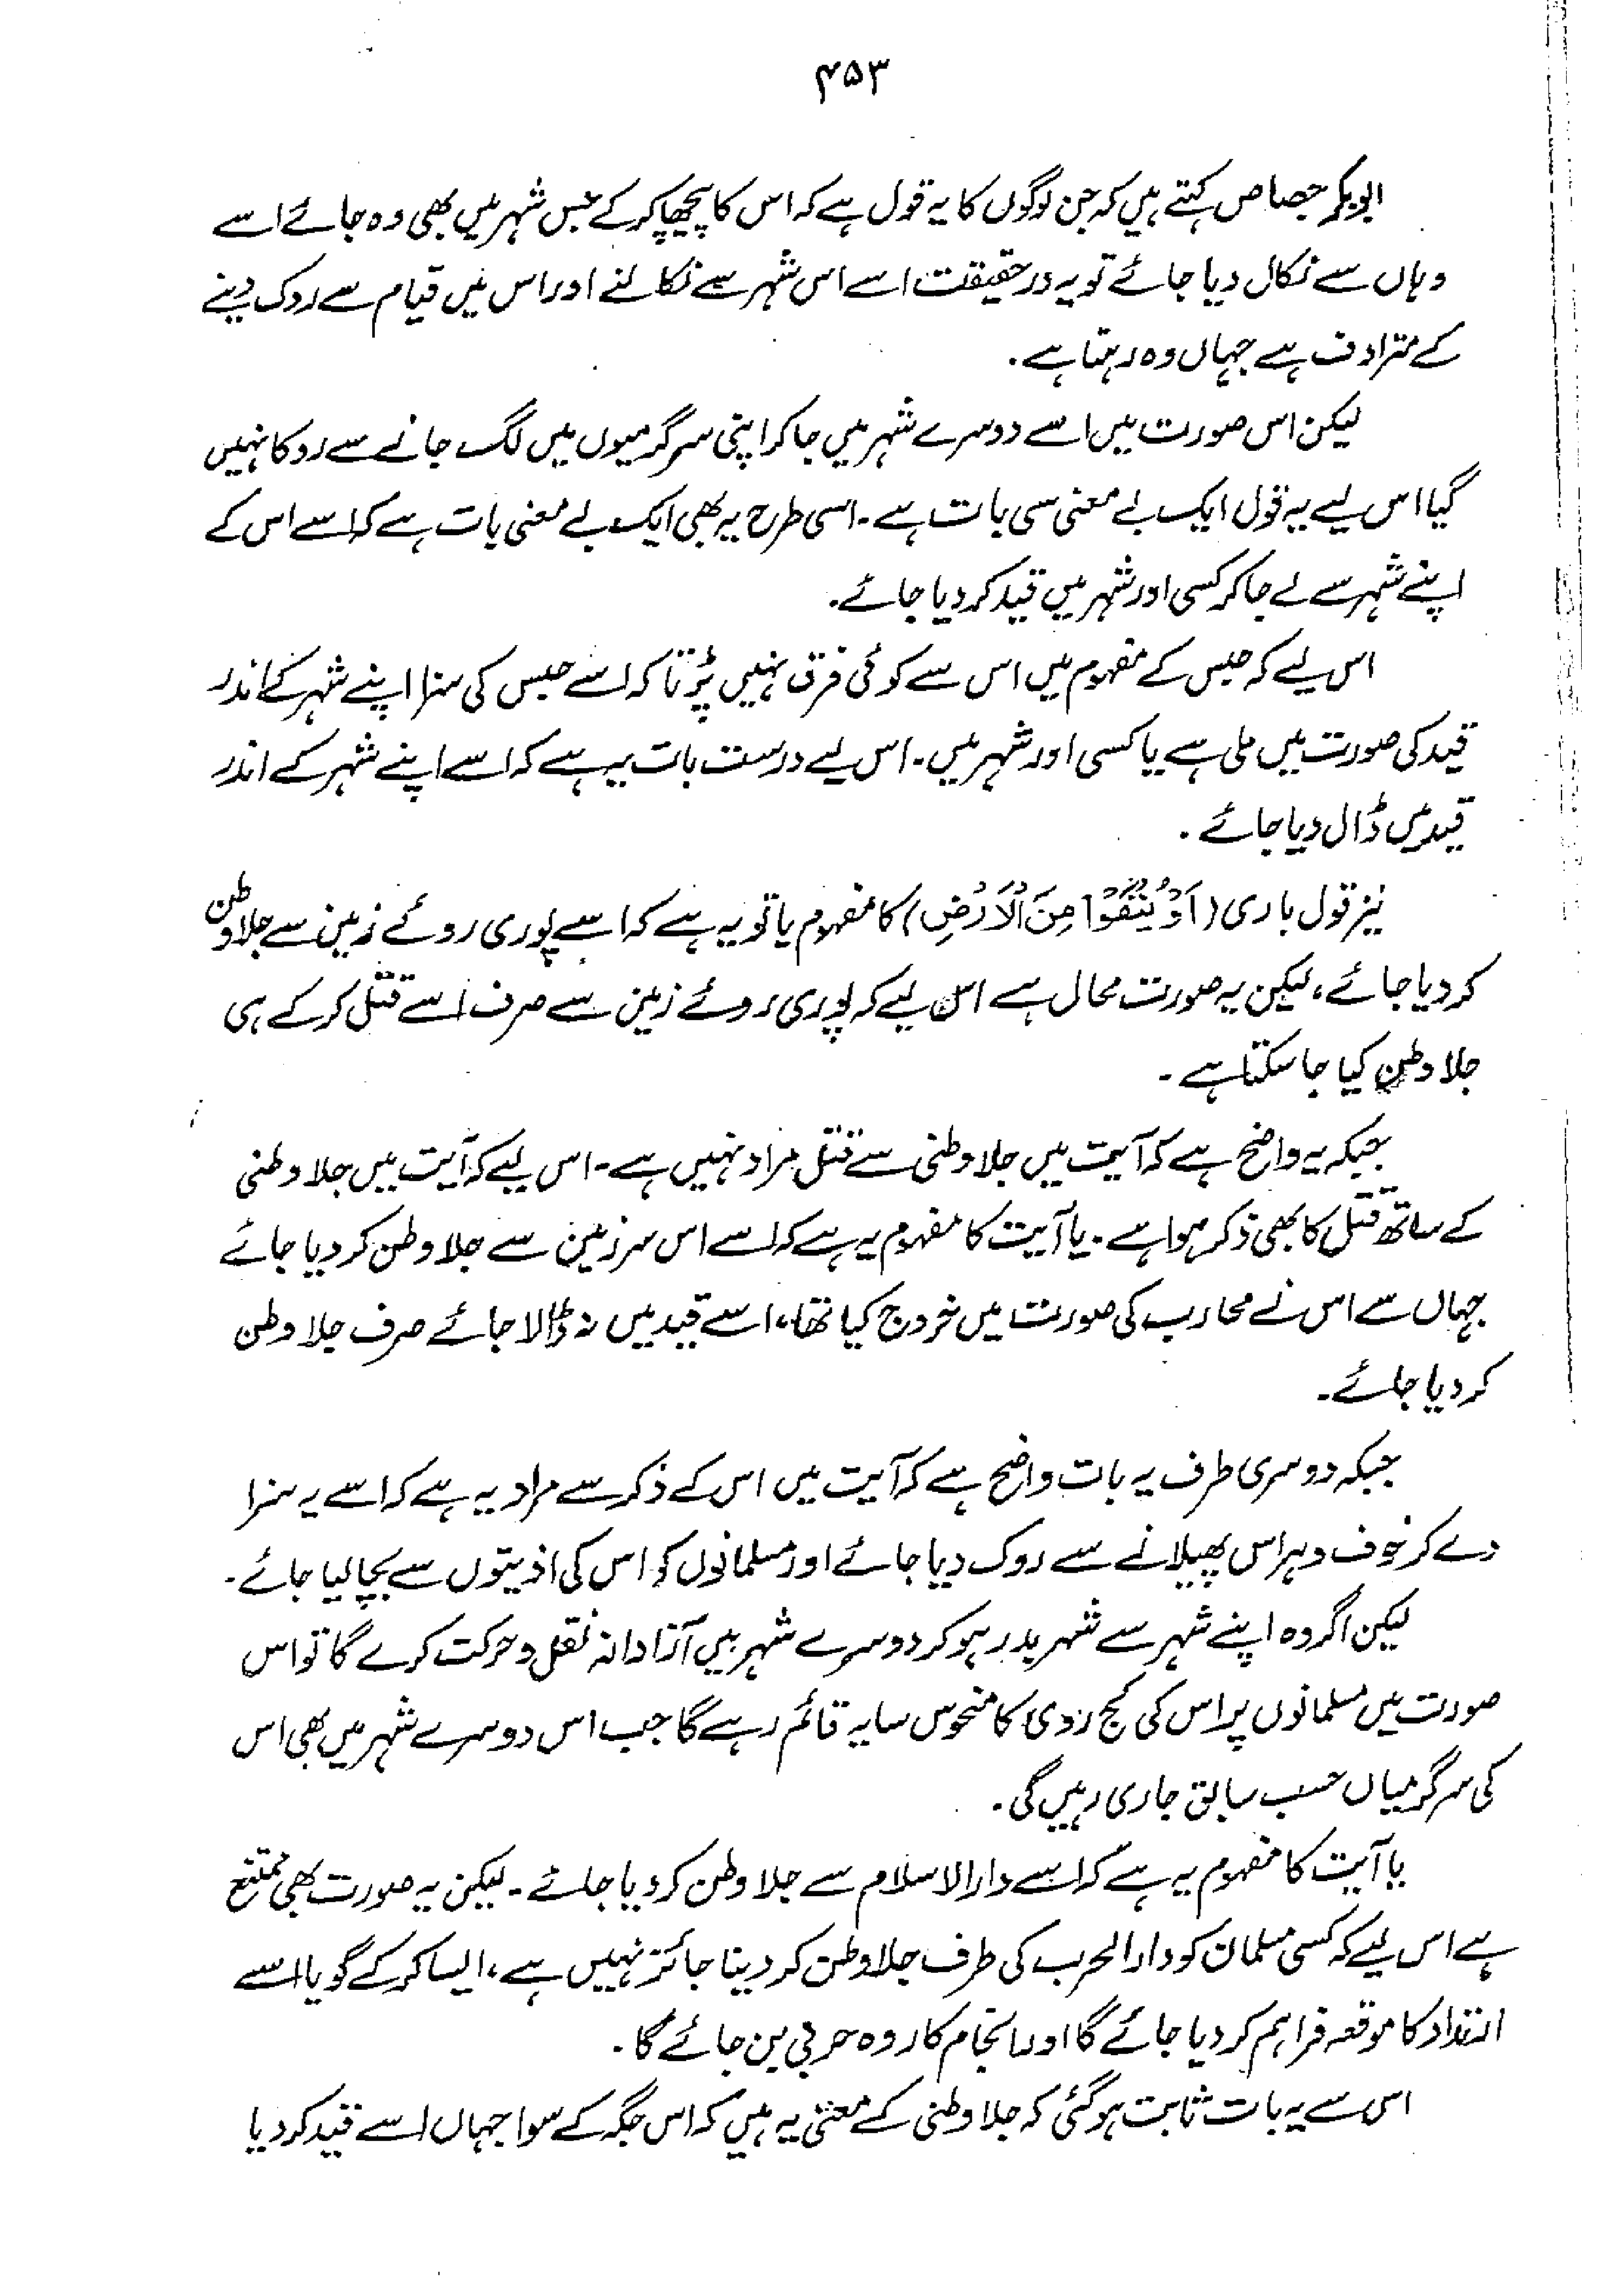 ۴۵۳
ابوبکر جصاص کہتے ہیں کہ جن لوگوں کا یہ قول ہے کہ اس کا پیچھا کرکے جس شہر میں بھی وہ جائے اسے
وہاں سے نکال دیا جائے تو یہ درحقیقت اسے اس شہر سے نکالنے اور اس میں قیام سے روک دینے
کے مترادف ہے جہاں وہ رہتا ہے۔
لیکن اس صورت میں اسے دوسرے شہر میں جا کر اپنی سرگرمیوں میں لگ جانے سے روکا نہیں
گیا اس لیے یہ قول ایک بے معنی سی بات ہے۔ اسی طرح یہ بھی ایک بے معنی بات ہے کہ اسے اس کے
اپنے شہر سے لے جا کر کسی اور شہر میں قید کر دیا جائے۔
اس لیے کہ حبس کے مفہوم میں اس سے کوئی فرق نہیں پڑتا کہ اسے حبس کی سزا اپنے شہر کے اندر
قید کی صورت میں ملی ہے یا کسی اور شہر میں۔ اس لیے درست بات یہ ہے کہ اسے اپنے شہر کے اندر
قید میں ڈال دیا جائے۔
نیز قول باری (اَوْ يُنْفَوْا مِنَ الْاَرْضِ) کا مفہوم یا تو یہ ہے کہ اسے پوری روئے زمین سے جلاوطن
کر دیا جائے، لیکن یہ صورت محال ہے اس لیے کہ پوری روئے زمین سے صرف اسے قتل کر کے ہی
جلاوطن کیا جا سکتا ہے۔
جبکہ یہ واضح ہے کہ آیت میں جلاوطنی سے قتل مراد نہیں ہے۔ اس لیے کہ آیت میں جلاوطنی
کے ساتھ قتل کا بھی ذکر ہوا ہے۔ یا آیت کا مفہوم یہ ہے کہ اسے اس سرزمین سے جلاوطن کر دیا جائے
جہاں سے اس نے محارب کی صورت میں خروج کیا تھا، اسے قید میں نہ ڈالا جائے صرف جلاوطن
کر دیا جائے۔
جبکہ دوسری طرف یہ بات واضح ہے کہ آیت میں اس کے ذکر سے مراد یہ ہے کہ اسے یہ سزا
دے کر خوف و ہراس پھیلانے سے روک دیا جائے اور مسلمانوں کو اس کی اذیتوں سے بچا لیا جائے۔
لیکن اگر وہ اپنے شہر سے شہر بدر ہو کر دوسرے شہر میں آزادانہ نقل و حرکت کرے گا تو اس
صورت میں مسلمانوں پر اس کی کج روی کا منحوس سایہ قائم رہے گا جب اس دوسرے شہر میں بھی اس
کی سرگرمیاں حسب سابق جاری رہیں گی۔
یا آیت کا مفہوم یہ ہے کہ اسے دارالاسلام سے جلاوطن کر دیا جائے۔ لیکن یہ صورت بھی ممتنع
ہے اس لیے کہ کسی مسلمان کو دارالحرب کی طرف جلاوطن کر دینا جائز نہیں ہے، ایسا کر کے گویا اسے
ارتداد کا موقعہ فراہم کر دیا جائے گا اور انجام کار وہ حربی بن جائے گا۔
اس سے یہ بات ثابت ہو گئی کہ جلاوطنی کے معنی یہ ہیں کہ اس جگہ کے سوا جہاں اسے قید کر دیا